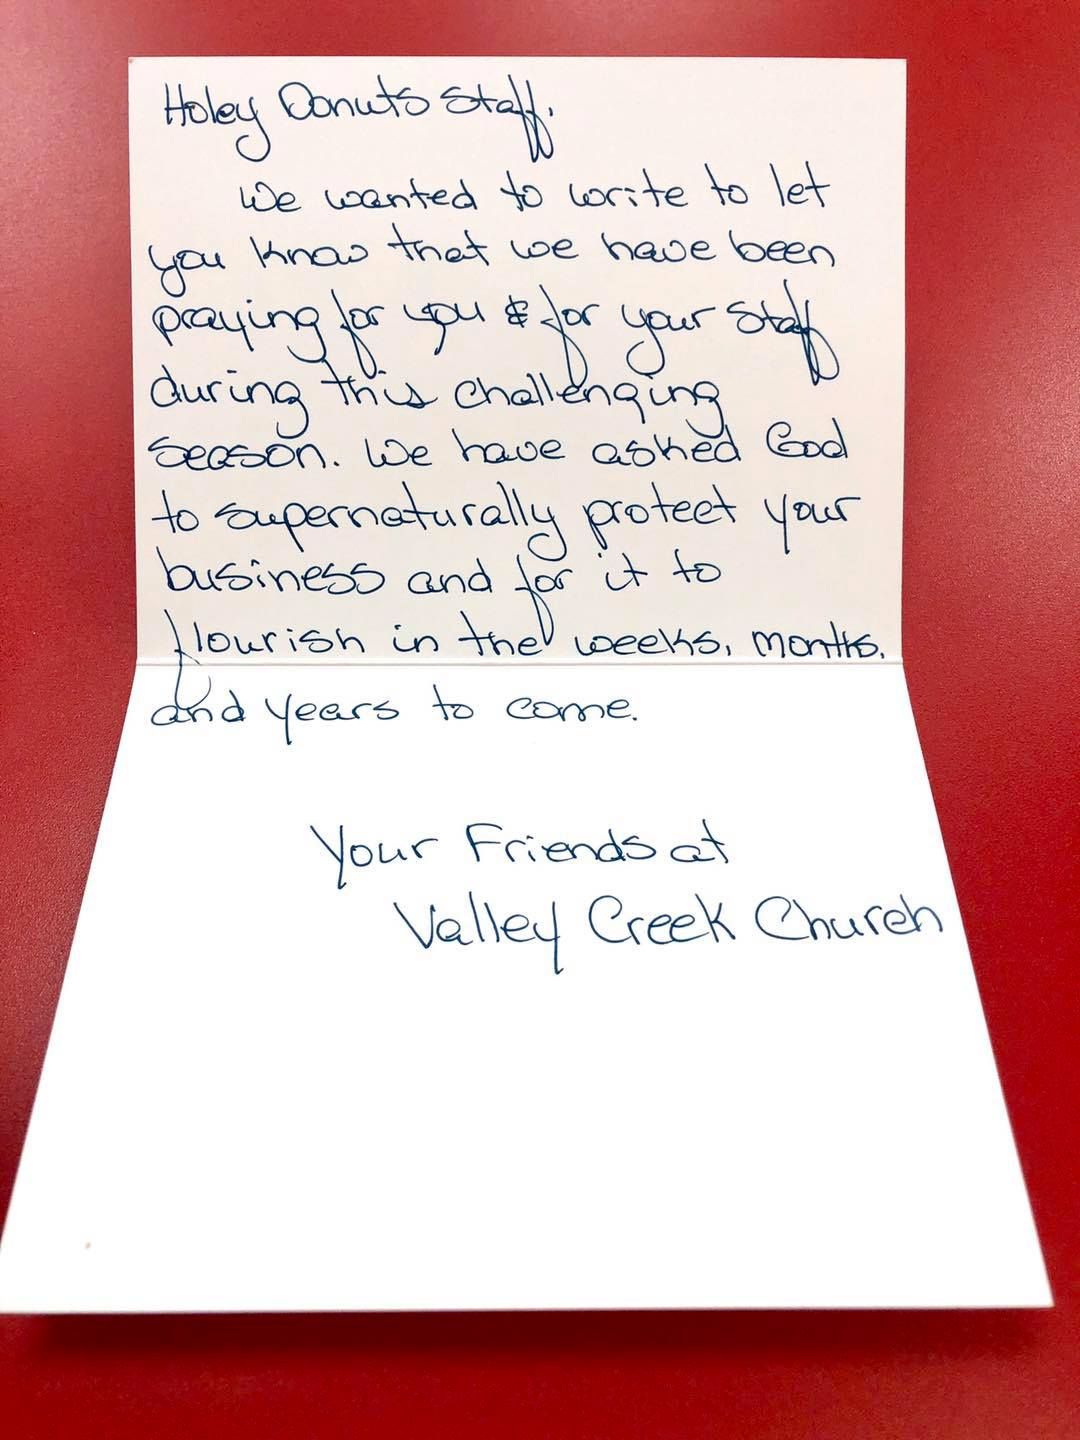 Holey Donuts Staff,
We wanted to write to let
you know that we have been
praying for you & for your staff
during this challenging
season. We have asked God
to supernaturally protect your
business and for it to
flourish in the weeks, months,
and years to come.
Your Friends at
Valley Creek Church